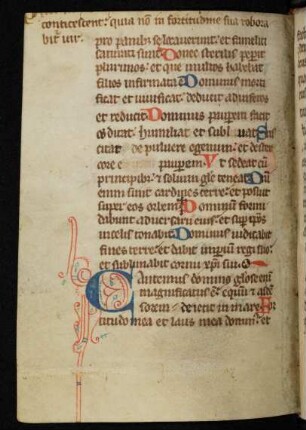 conticescent: quia nō in fortitudine sua robora
bit̄ uir.
pro panib; se locauerunt: et famelici
saturati sunt Donec sterilis peperit
plurimos: et que multos habebat
filios infirmata Dominus morti
ficat et uiuificat: deducit ad inferos
et reducit Dominus pauperem facit
et ditat: humiliat et subleuat Sus
citat de puluere egenum: et de ster
core e pauperem Vt sedeat cū
principib;: et solium gl̄e teneat Dn̄i
enim sunt cardines terre: et posuit
super eos orbem Dominum formi
dabunt aduersarii eius: et sup̄ ip̄os
in celis tonabit Dominus iudicabit
fines terre: et dabit imperium regi suo:
et sublimabit cornu xp̄i sui
Cantemus domino glose enī
magnificatus ē: equū
deiecit in mare For
titudo mea et laus mea et